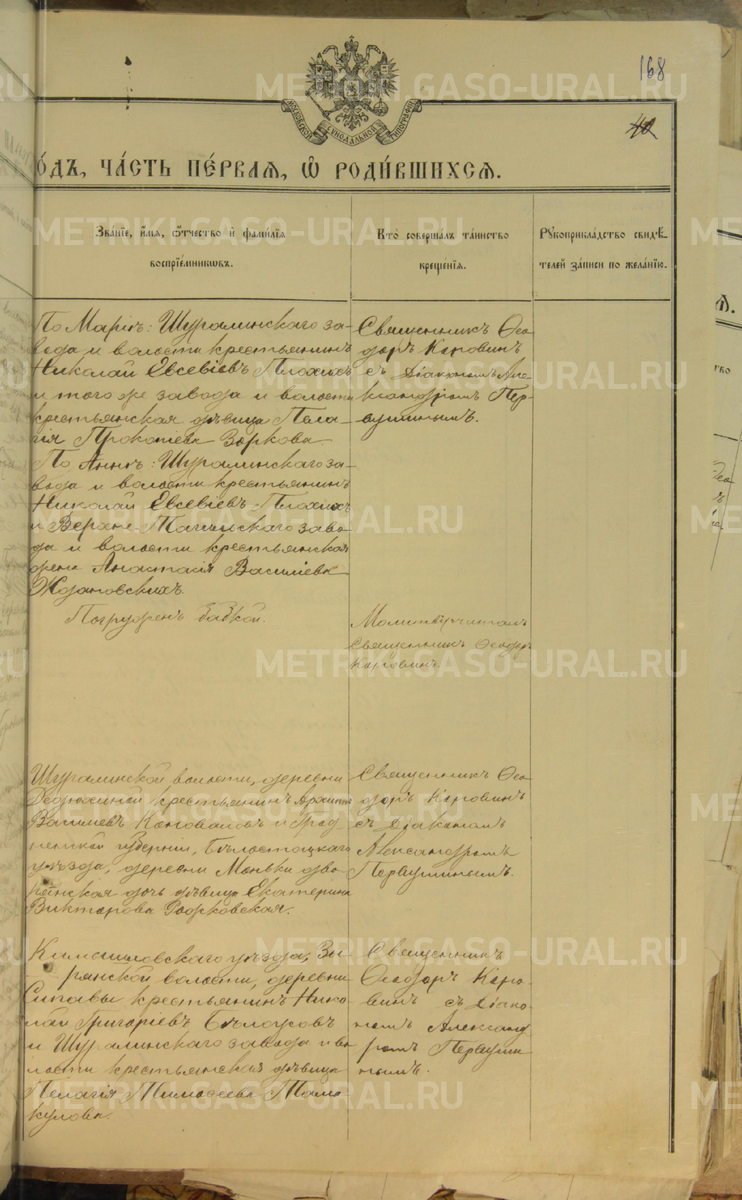 168
40
МОСКОВСКОЙ СѴНОДАЛЬНОЙ ТИПОГРАФІИ
ОДЪ, ЧА́СТЬ ПЕ́РВАЯ, Ѡ РОДИ́ВШИХСЯ.
Зва́ніе, и́мя, ѻ́тчество и҆ фами́лія
воспріе́мниковъ.
Кто̀ соверша́лъ та́инство
креще́нія.
Рꙋкоприкла́дство свидѣ́-
телей за́писи по жела́нію.
По Маріи: Шуралинскаго за-
вода и волости крестьянинъ
Николай Евсевіевъ Плохихъ
и того же завода и волости
крестьянская дѣвица Пела-
гія Прокопіева Зоркова
По Аннѣ: Шуралинскаго за-
вода и волости крестьянинъ
Николай Евсевіевъ Плохихъ
и Верхне-Тагильскаго заво-
да и волости крестьянская
жена Анастасія Василіева
Ждановскихъ.
Священникъ Ѳео-
доръ Коровинъ
съ діакономъ Але-
ксандромъ Пер-
вушинымъ.
Погруженъ бабкой.
Молитву читалъ
Священникъ Ѳеодоръ
Коровинъ
Шуралинской волости, деревни
крестьянинъ Архипъ
Василіевъ Коноваловъ и Грод-
ненской губерніи, Бѣлостоцкаго
уѣзда, деревни Моньки дво-
рянская дочь дѣвица Екатерина
Викторова
Священникъ Ѳео-
доръ Коровинъ
съ діакономъ
Александромъ
Первушинымъ.
Камышловскаго уѣзда, Зы-
рянской волости, деревни
крестьянинъ Нико-
лай Григоріевъ Бѣлоусовъ
и Шуралинскаго завода и во-
лости крестьянская дѣвица
Пелагія Тимоѳеева Тала-
кулова.
Священникъ
Ѳеодоръ Коро-
винъ съ діако-
номъ Александ-
ромъ Первуши-
нымъ.
METRIKI.GASO-URAL.RU